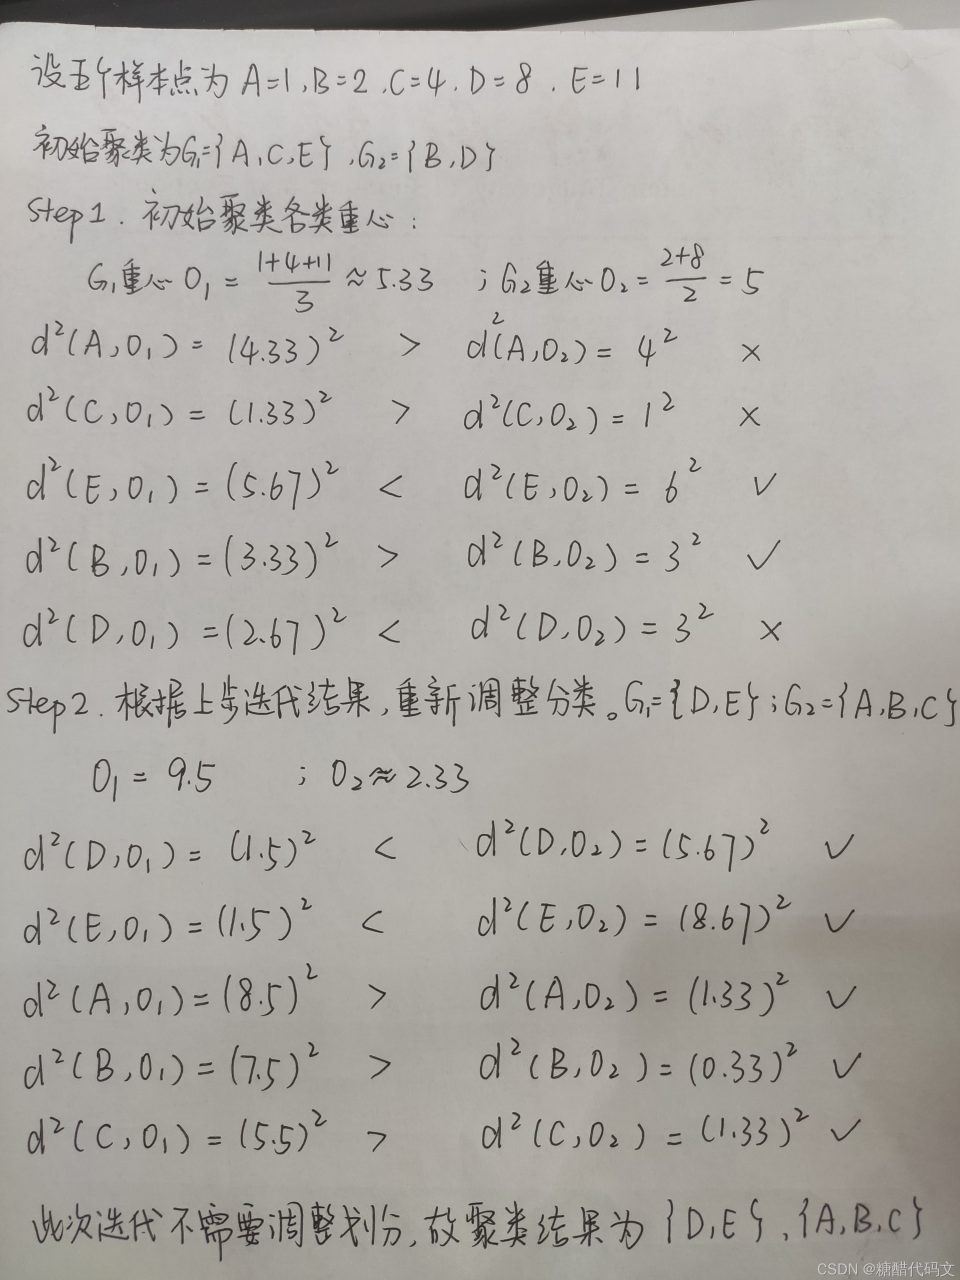 设五个样本点为 A=1,B=2,C=4,D=8,E=11
初始聚类为G₁={A,C,E},G₂={B,D}
Step1. 初始聚类各类重心:
G₁重心O₁ = (1+4+11)/3 ≈ 5.33 ; G₂重心O₂ = (2+8)/2 = 5
d²(A,O₁) = (4.33)² > d²(A,O₂) = 4² ×
d²(C,O₁) = (1.33)² > d²(C,O₂) = 1² ×
d²(E,O₁) = (5.67)² < d²(E,O₂) = 6² ✓
d²(B,O₁) = (3.33)² > d²(B,O₂) = 3² ✓
d²(D,O₁) = (2.67)² < d²(D,O₂) = 3² ×
Step2. 根据上步迭代结果,重新调整分类。G₁={D,E};G₂={A,B,C}
O₁ = 9.5 ; O₂ ≈ 2.33
d²(D,O₁) = (1.5)² < d²(D,O₂) = (5.67)² ✓
d²(E,O₁) = (1.5)² < d²(E,O₂) = (8.67)² ✓
d²(A,O₁) = (8.5)² > d²(A,O₂) = (1.33)² ✓
d²(B,O₁) = (7.5)² > d²(B,O₂) = (0.33)² ✓
d²(C,O₁) = (5.5)² > d²(C,O₂) = (1.33)² ✓
此次迭代不需要调整划分,故聚类结果为 {D,E},{A,B,C}
CSDN @糖醋代码文